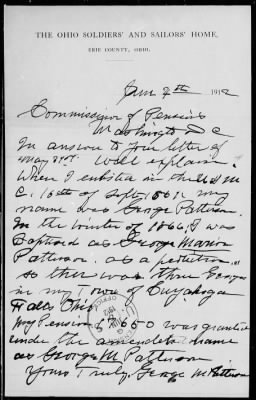 THE OHIO SOLDIERS' AND SAILORS' HOME,
ERIE COUNTY, OHIO.
June 9th 1912
Commission of Pensions
Washington D C
In answer to your letter of
May 31st. Will explain.
When I enlisted in the U S M
C. 16th of Sept 1861 my
name was George Patterson.
In the winter of 1866 I was
Baptised as George Marion
Patterson as a
as ther was three Georges
in my Town of Cuyahoga
Falls Ohio
My Pension 37650 was granted
under the name
as George M Patterson
Yours Truly. George M Patterson